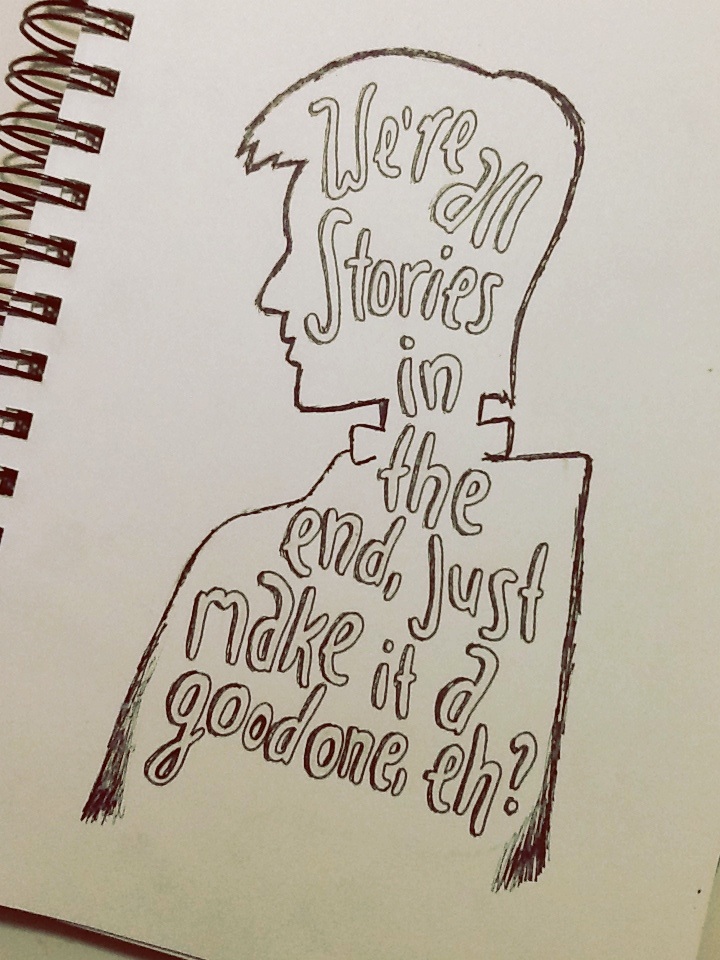 We're
all
Stories
in
the
end, Just
make it a
good one, eh?